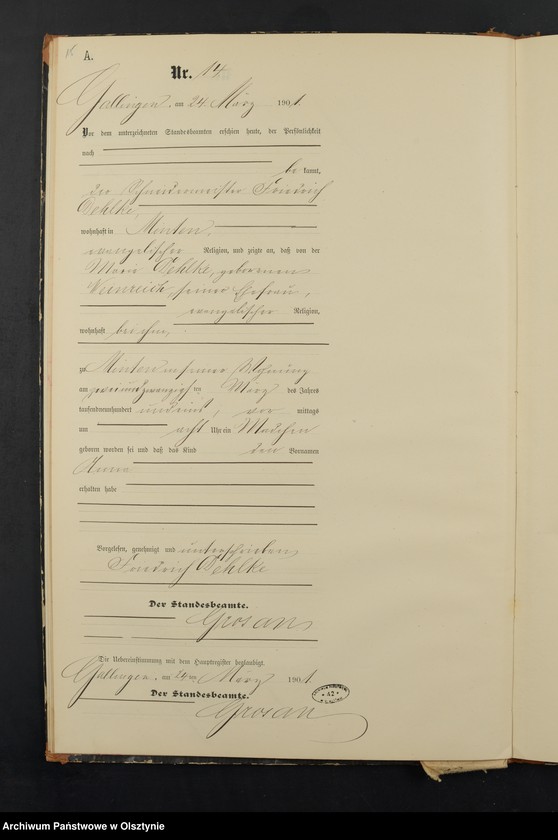 A.
Nr. 14.
Gallingen, am 24. März 1901.
Vor dem unterzeichneten Standesbeamten erschien heute, der Persönlichkeit
nach
be kannt,
der Schneidermeister Friedrich
Oehlke,
wohnhaft in Minten,
evangelischer Religion, und zeigte an, daß von der
Marie Oehlke, geborenen
Weinreich, seiner Ehefrau,
evangelischer Religion,
wohnhaft bei ihm,
zu Minten in seiner Wohnung
am zweiundzwanzigsten März des Jahres
tausendneunhundert undeins, vor mittags
um acht Uhr ein Mädchen
geboren worden sei und daß das Kind den Vornamen
Anna
erhalten habe
Vorgelesen, genehmigt und unterschrieben
Friedrich Oehlke
Der Standesbeamte.
Grosan
Die Uebereinstimmung mit dem Hauptregister beglaubigt.
Gallingen, am 24ten März 1901.
Der Standesbeamte.
Grosan
Archiwum Państwowe w Olsztynie